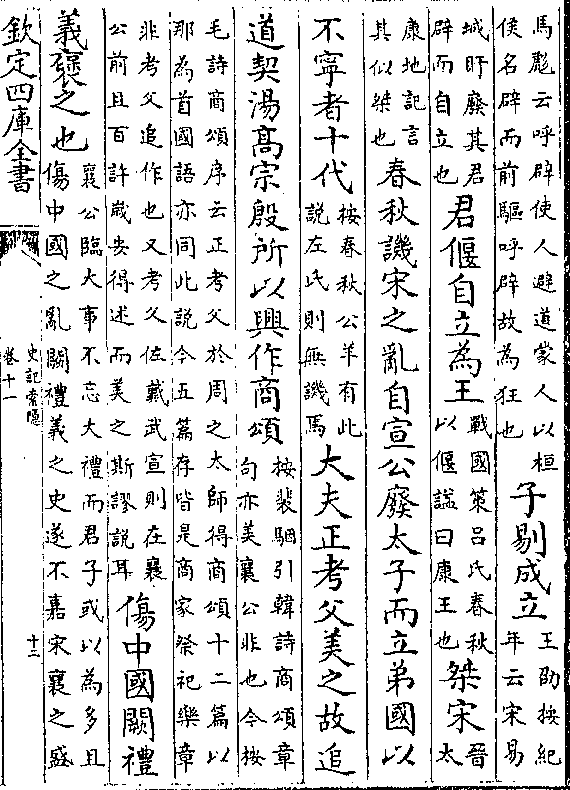 馬彪云呼辟使人避道蒙人以桓
侯名辟而前驅呼辟故為狂也
子剔成立
王劭按紀
年云宋易
城盱廢其君
辟而自立也
君偃自立為王
戰國策呂氏春秋
以偃諡曰康王也
桀宋
晉
太
康地記言
其似桀也
春秋譏宋之亂自宣公廢太子而立弟國以
不寧者十代
按春秋公羊有此
說左氏則無譏焉
大夫正考父美之故追
道契湯髙宗殷所以興作商頌
按裴駰引韓詩商頌章
句亦美襄公非也今按
毛詩商頌序云正考父於周之太師得商頌十二篇以
那為首國語亦同此說今五篇存皆是商家祭祀樂章
非考父追作也又考父佐戴武宣則在襄
公前且百許歲安得述而美之斯謬說耳
傷中國闕禮
義襃之也
襄公臨大事不忘大禮而君子或以為多且
傷中國之亂闕禮義之史遂不嘉宋襄之盛
欽定四庫全書
史記索隱
卷十一
十二